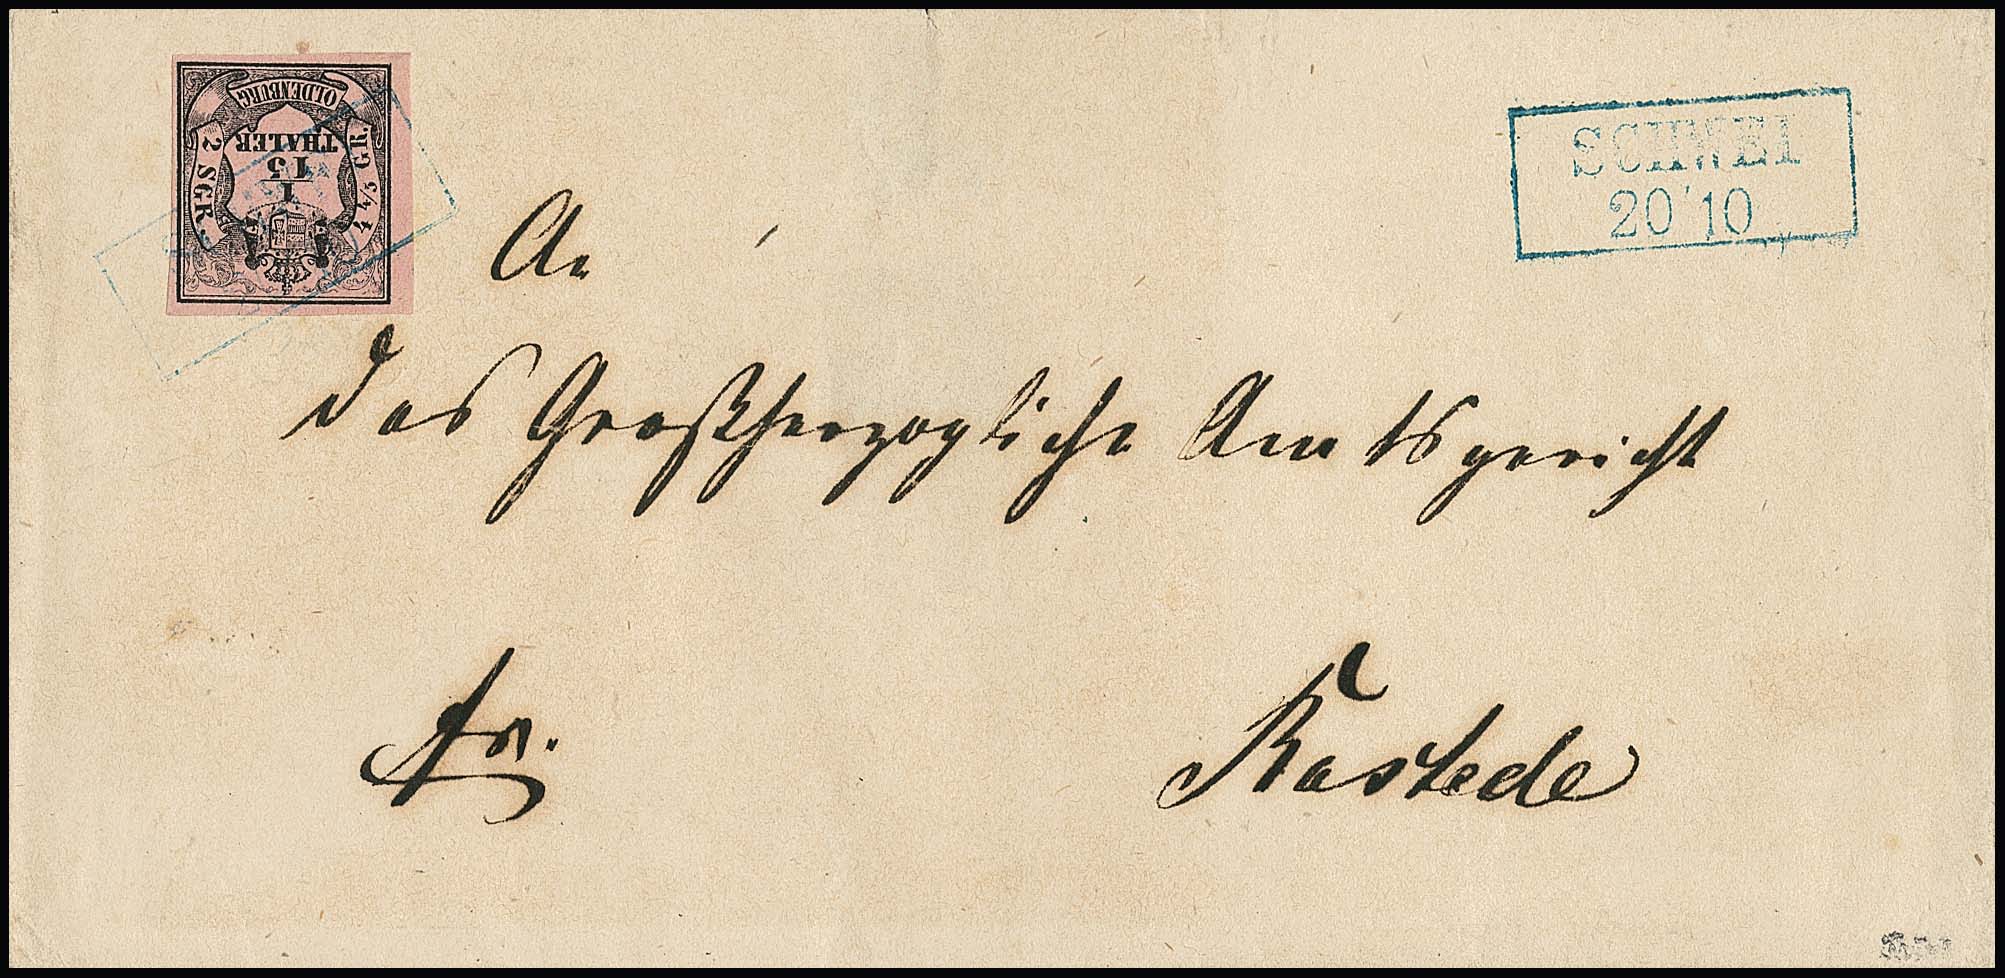 OLDENBURG
2 SGR.
4 4/5 GR.
1/15
THALER
SCHWEI
20 10
An
das Großherzogliche Amtsgericht
fr.
Rastede